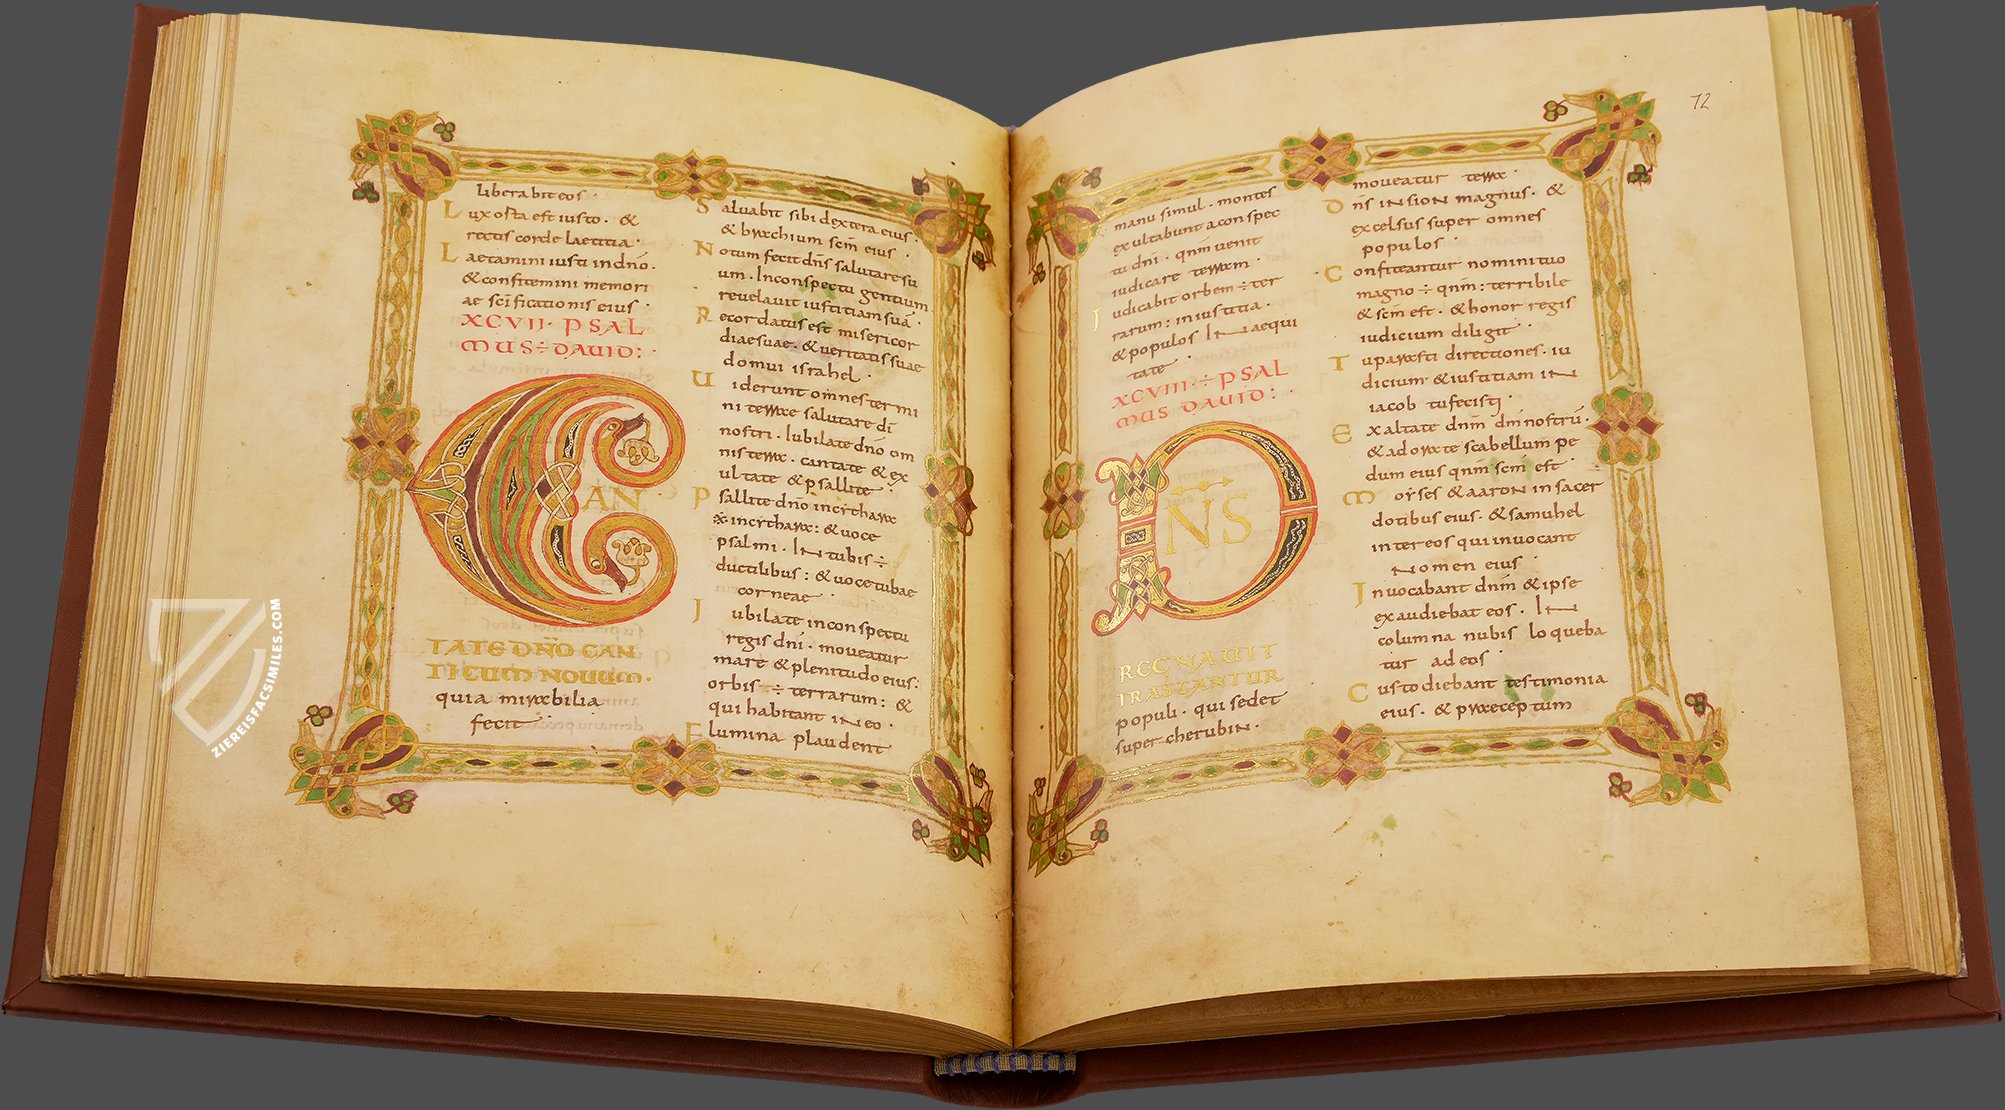 liberabit eos ·
Lux orta est iusto · &
rectis corde laetitia ·
Laetamini iusti in dnō ·
& confitemini memori
ae scīficationis eius ·
XCVII · PSAL
MUS ÷ DAUID :
CAN
TATE DNŌ CAN
TICUM NOUUM ·
quia mirabilia
fecit ·
Saluabit sibi dextera eius ·
& brachium scm̄ eius ·
Notum fecit dn̄s salutare su
um · In conspectu gentium
reuelauit iustitiam suā ·
Recordatus est misericor
diae suae · & ueritatis suae
domui israhel ·
Uiderunt omnes termi
ni terrae salutare dī
nostri · Iubilate dnō om
nis terra · cantate & ex
ultate & psallite ·
Psallite dnō in cythara
※ in cythara : & uoce
psalmi · In tubis ÷
ductilibus : & uoce tubae
corneae ·
Iubilate in conspectu
regis dnī · moueatur
mare & plenitudo eius :
orbis ÷ terrarum : &
qui habitant in eo ·
Flumina plaudent
72
manu simul · montes
exultabunt a conspec
tu dnī · qnm̄ uenit
iudicare terram ·
Iudicabit orbem ÷ ter
rarum : in iustitia ·
& populos In aequi
tate ·
XCVIII · ÷ PSAL
MUS DAUID :
DNS
REGNAUIT
IRASCANTUR
populi · qui sedet
super cherubin ·
moueatur terra ·
Dn̄s in sion magnus · &
excelsus super omnes
populos ·
Confiteantur nomini tuo
magno ÷ qnm̄ : terribile
& scm̄ est · & honor regis
iudicium diligit ·
Tu parasti directiones · iu
dicium & iustitiam in
iacob tu fecisti ·
Exaltate dnm̄ dm̄ nostrū ·
& adorate scabellum pe
dum eius qnm̄ scm̄ est ·
Moyses & aaron in sacer
dotibus eius · & samuhel
inter eos qui inuocant
nomen eius
Inuocabant dnm̄ & ipse
exaudiebat eos · In
columna nubis loqueba
tur ad eos ·
Custodiebant testimonia
eius · & praeceptum
ZIEREISFACSIMILES.COM